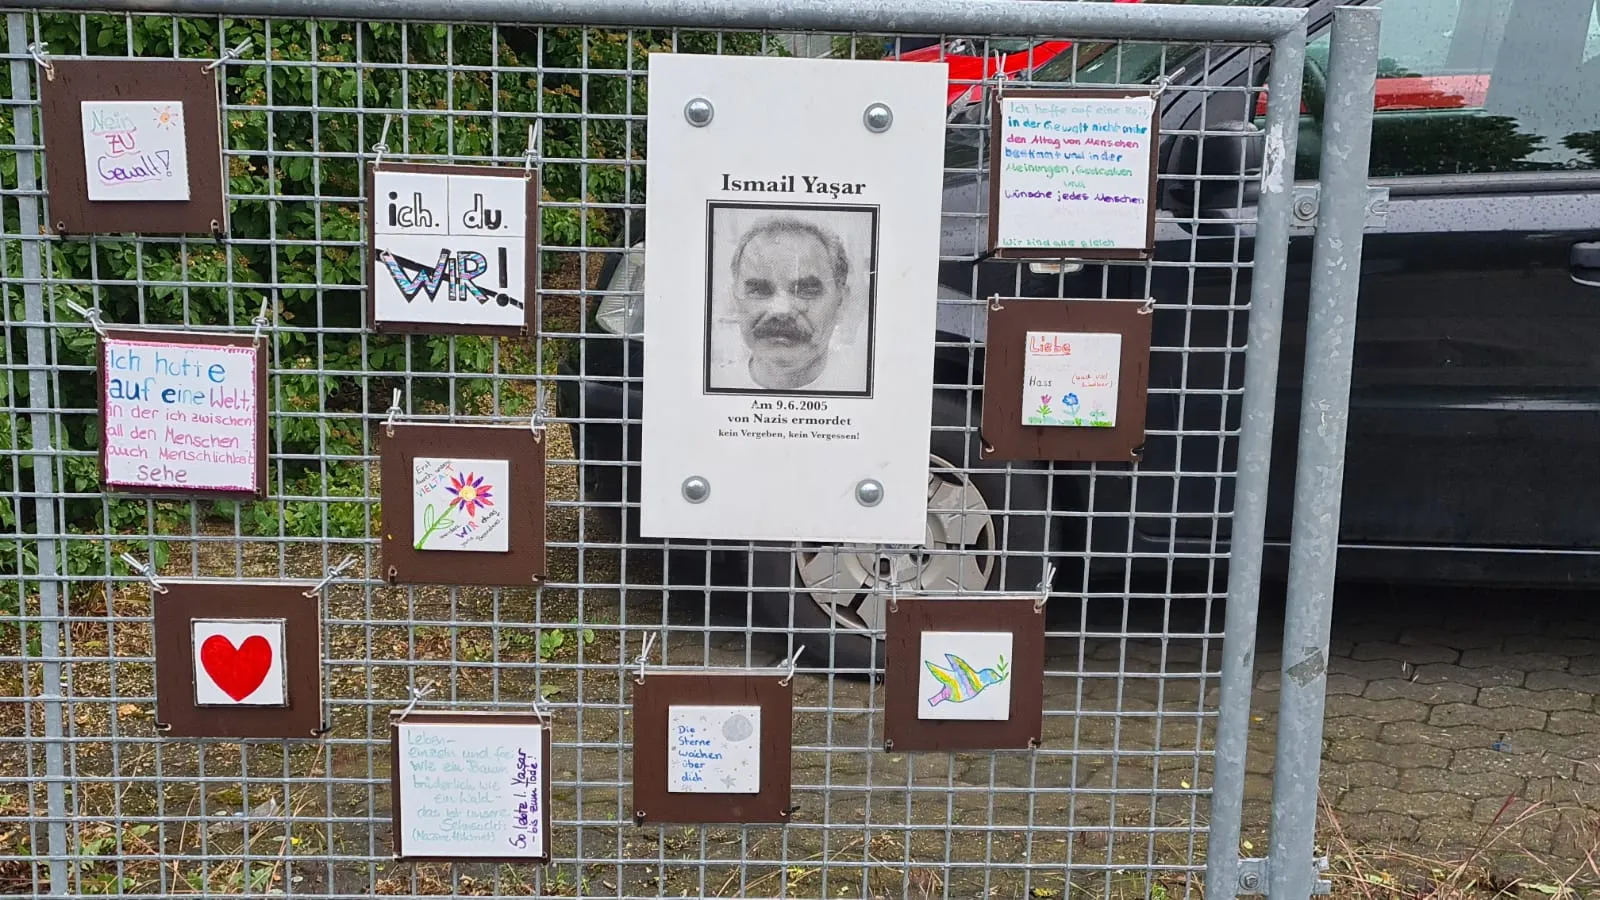 Nein
zu
Gewalt!
ich. du.
WIR!
Ismail Yaşar
Am 9.6.2005
von Nazis ermordet
kein Vergeben, kein Vergessen!
Ich hoffe auf eine Zeit,
in der Gewalt nicht mehr
den Alltag von Menschen
bestimmt und in der
Meinungen, Gedanken
und
Wünsche jedes Menschen
Wir sind alle gleich
Ich hoffe
auf eine Welt,
in der ich zwischen
all den Menschen
auch Menschlichkeit
sehe
Liebe
Hass
Erst
durch
VIELFALT
werden
WIR etwas
ganz Besonderes!
Leben
einzeln und frei
wie ein Baum
brüderlich wie
ein Wald
das ist unsere
Sehnsucht
(Nazim Hikmet)
So lebte I. Yaşar
- bis zum Tode!
Die
Sterne
wachen
über
dich